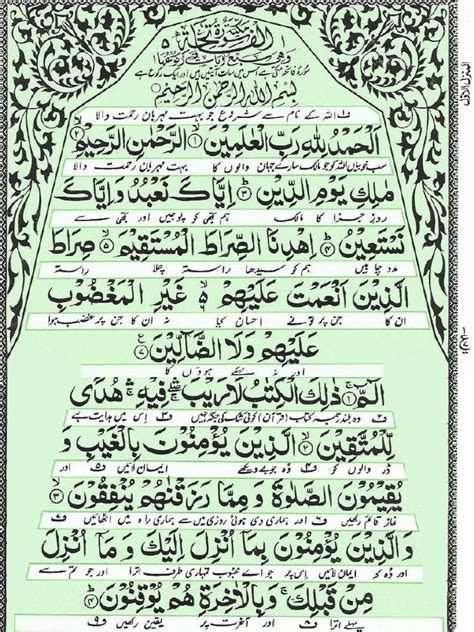 سُوْرَةُ الْفَاتِحَةِ
سورۃ فاتحہ مکی ہے اس میں سات آیتیں ہیں اور ایک رکوع ہے
بِسْمِ اللّٰهِ الرَّحْمٰنِ الرَّحِيْمِ
ف اللہ کے نام سے شروع جو بہت مہربان رحمت والا
اَلْحَمْدُ لِلّٰهِ رَبِّ الْعٰلَمِيْنَ ۱ الرَّحْمٰنِ الرَّحِيْمِ ۲
سب خوبیاں اللہ کو جو مالک سارے جہان والوں کا بہت مہربان رحمت والا
مٰلِكِ يَوْمِ الدِّيْنِ ۳ اِيَّاكَ نَعْبُدُ وَاِيَّاكَ
روز جزا کا مالک ہم تجھی کو پوجیں اور تجھی سے
نَسْتَعِيْنُ ۴ اِهْدِنَا الصِّرَاطَ الْمُسْتَقِيْمَ ۵ صِرَاطَ
مدد چاہیں ہم کو سیدھا راستہ چلا راستہ
الَّذِيْنَ اَنْعَمْتَ عَلَيْهِمْ ۶ غَيْرِ الْمَغْضُوْبِ
ان کا جن پر تو نے احسان کیا نہ ان کا جن پر غضب ہوا
عَلَيْهِمْ وَلَا الضَّآلِّيْنَ ۷
اور نہ بہکے ہوؤں کا
الٓمّٓ ۱ ذٰلِكَ الْكِتٰبُ لَا رَيْبَ فِيْهِ هُدًى
ف وہ بلند رتبہ کتاب (قرآن) کوئی شک کی جگہ نہیں ف اس میں ہدایت ہے
لِّلْمُتَّقِيْنَ ۲ الَّذِيْنَ يُؤْمِنُوْنَ بِالْغَيْبِ وَ
ڈر والوں کو ف وہ جو بے دیکھے ایمان لائیں ف اور
يُقِيْمُوْنَ الصَّلٰوةَ وَ مِمَّا رَزَقْنٰهُمْ يُنْفِقُوْنَ ۳
نماز قائم رکھیں ف اور ہماری دی ہوئی روزی میں سے ہماری راہ میں اٹھائیں ف
وَالَّذِيْنَ يُؤْمِنُوْنَ بِمَآ اُنْزِلَ اِلَيْكَ وَ مَآ اُنْزِلَ
اور وہ کہ ایمان لائیں اس پر جو اے محبوب تمہاری طرف اترا اور جو تم سے
مِنْ قَبْلِكَ وَبِالْاٰخِرَةِ هُمْ يُوْقِنُوْنَ ۴
پہلے اترا ف اور آخرت پر یقین رکھیں ف۹